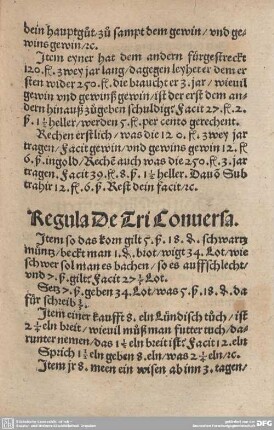 dein hauptgůt zů sampt dem gewin/ vnd ge-
wins gewin/ ꝛc.
Item eyner hat dem andern fürgestreckt
120. fl. zwey jar lang/ dagegen leyhet er dem er
sten wider 250. fl. die braucht er 3. jar/ wieuil
gewin vnd gewinß gewin/ ist der erst dem an-
dern hinauß zůgeben schuldig: Facit 27. fl. 2.
ß. 1½ heller/ werden 5. fl. per cento gerechent.
Rechen erstlich/ was die 120. fl. zwey jar
tragen/ Facit gewin/ vnd gewins gewin 12. fl.
6. ß. in gold/ Rechē auch was die 250. fl. 3. jar
tragen. Facit 39. fl. 8. ß. 1½ heller. Dauõ Sub
trahir 12. fl. 6. ß. Rest dein facit/ ꝛc.
Regula De Tri Conuersa.
Item so das korn gilt 5. ß. 18. ₰. schwartz
müntz/ beckt man 1. ₰. brot/ wigt 34. Lot/ wie
schwer sol man es bachen/ so es auffschlecht/
vnd 7. ß. gilt: Facit 27⅕ Lot.
Setz 7. ß. geben 34. Lot/ was 5. ß. 18. ₰. da
für schreib
Item einer kaufft 8. eln Lündisch tůch/ ist
2¼ eln breit/ wieuil můß man futter tuch/ da-
runter nemen/ das 1½ eln breit ist: Facit 12. eln
Sprich 1½ eln geben 8. eln/ was 2¼ eln/ ꝛc.
Item jr 8. meen ein wisen ab inn 3. tagen/